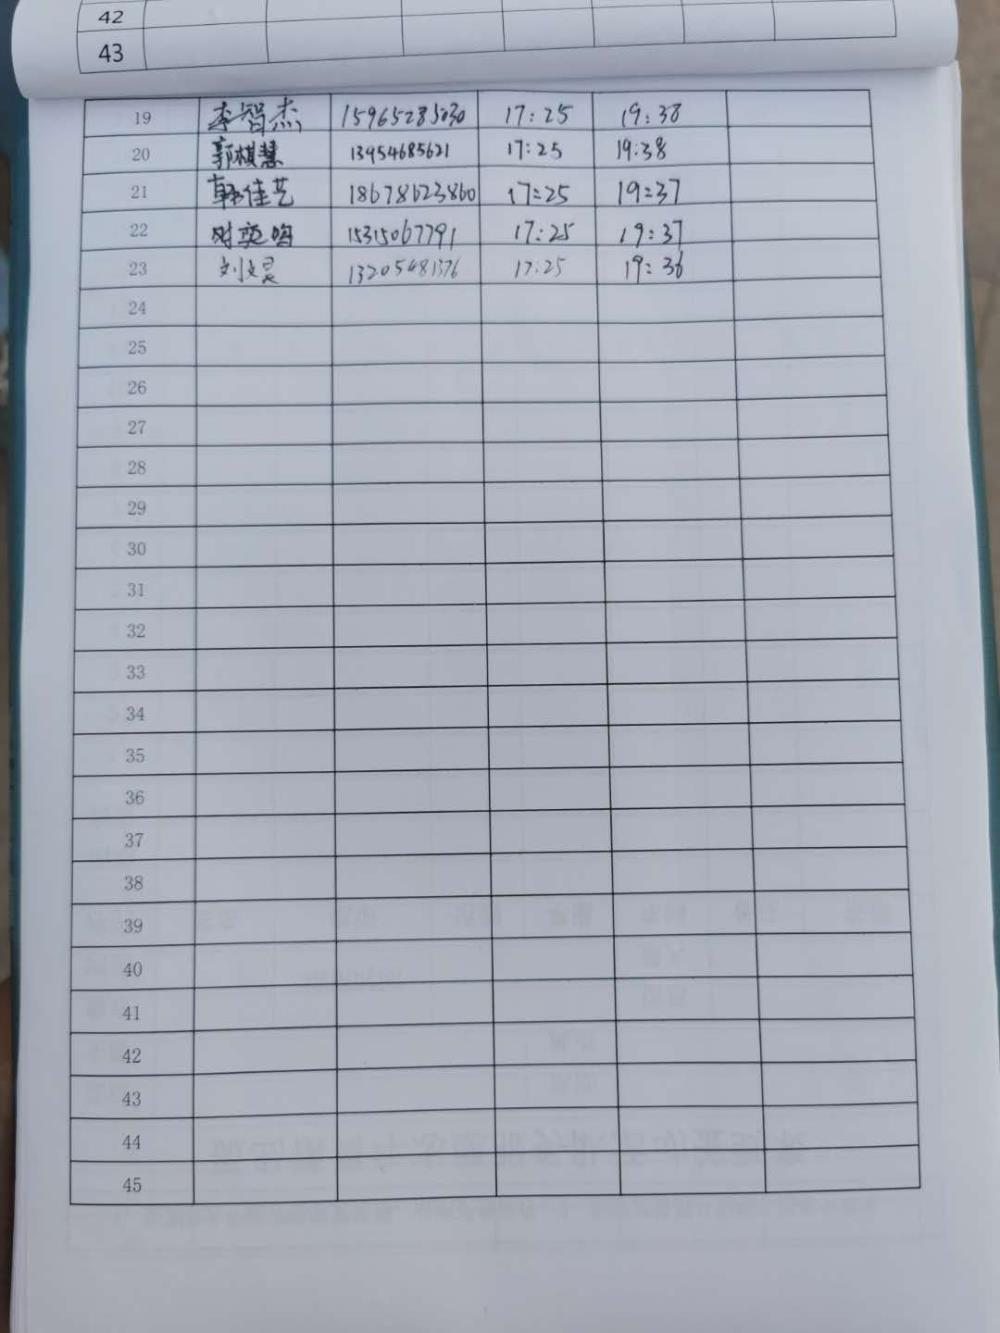 42
43
19 李智杰 15965285030 17:25 19:38
20 郭棋慧 13954685621 17:25 19:38
21 韩佳艺 18678623860 17:25 19:37
22 15315067791 17:25 19:37
23 刘文灵 13205481376 17:25 19:36
24
25
26
27
28
29
30
31
32
33
34
35
36
37
38
39
40
41
42
43
44
45